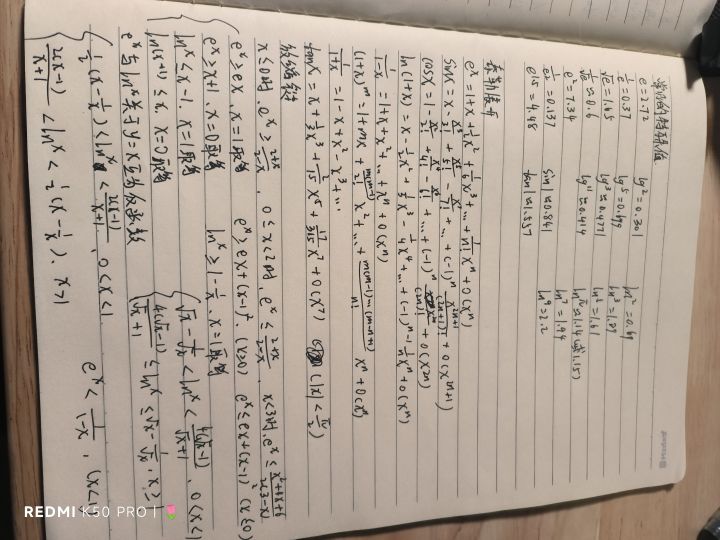 常见的特殊值
e=2.72 lg²=0.301 ln²=0.69
1/e=0.37 lg⁵=0.699 ln³=1.09
√e=1.65 lg³≈0.4771 ln⁵=1.61
1/√e≈0.6 lg¹¹≈0.414
e²=7.34 ln⁷=1.94
1/e²=0.137 sin1≈0.841 ln⁹=2.2
e^1.5=4.48 tan1≈1.557
泰勒展开
e^x=1+x+1/2!x²+1/6x³+…+1/n!xⁿ+o(xⁿ)
sinx=x-x³/3!+x⁵/5!-x⁷/7!+…+(-1)ⁿx^(2n+1)/(2n+1)!+o(x^(2n+1))
cosx=1-x²/2!+x⁴/4!-x⁶/6!+…+(-1)ⁿx^(2n)/(2n)!+o(x^(2n))
ln(1+x)=x-1/2x²+1/3x³-1/4x⁴+…+(-1)^(n-1)1/n xⁿ+o(xⁿ)
1/(1-x)=1+x+x²+…+xⁿ+o(xⁿ)
1/(1+x)=1-x+x²-x³+…
(1+x)^m=1+mx+m(m-1)/2!x²+…+m(m-1)…(m-n+1)/n!xⁿ+o(xⁿ)
tanx=x+1/3x³+2/15x⁵+17/315x⁷+o(x⁷) (|x|<π/2)
x≤0时,e^x≥(2+x)/(2-x), 0≤x<2时,e^x≤(2+x)/(2-x), x<3时,e^x≤(x²+4x+6)/(2(3-x))
e^x≥ex,x=1取等 e^x≥ex+(x-1)².(x≥0) e^x≤ex+(x-1)²(x≤0)
e^x≥x+1、x=0取等 ln^x≥1-1/x、x=1取等
ln^x≤x-1、x=1取等 √x-1/√x<ln^x<4(√x-1)/(√x+1)、0<x<1
ln(x+1)≤x、x=0取等 4(√x-1)/(√x+1)≤ln^x≤√x-1/√x,x≥1
e^x与ln^x关于y=x互为反函数
1/2(x-1/x)<ln^x<2(x-1)/(x+1),0<x<1 e^x<1/(1-x),(x<1)
2(x-1)/(x+1)<ln^x<1/2(x-1/x),x>1
REDMI K50 PRO